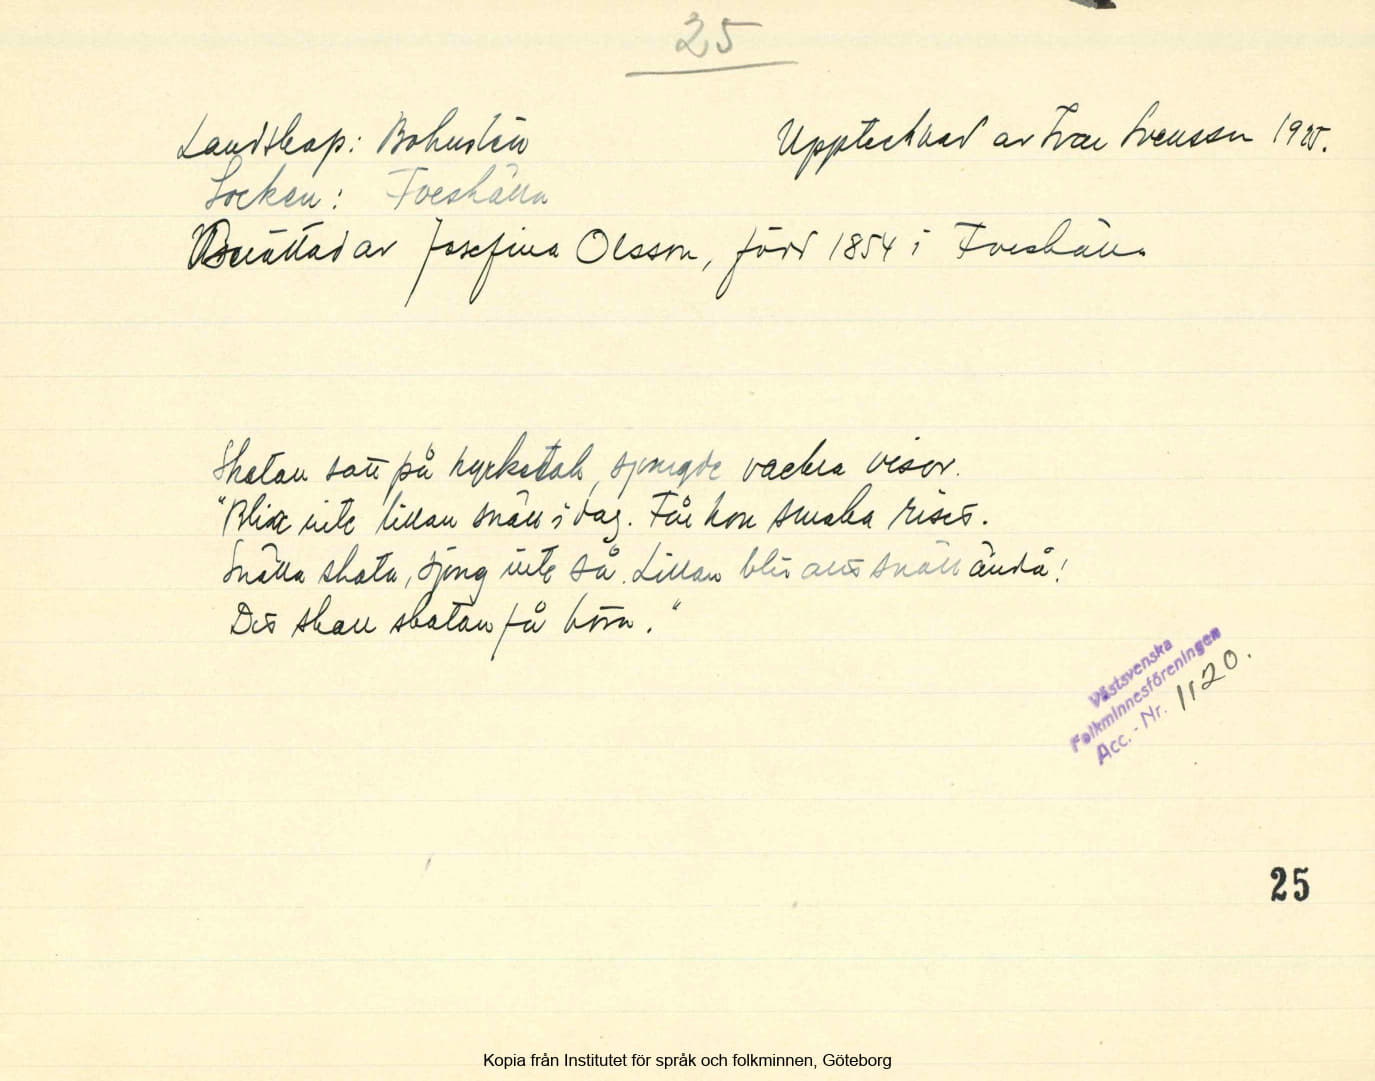 25
Landskap: Bohuslän
Upptecknad av Ivar Svensson 1925.
Socken: Foreshälla
Berättad av Josefina Olsson, född 1854 i Foreshälla
Skatan satt på kyrketak, sjongde vackra visor.
"Blir inte lillan snäll i dag. Får hon smaka riset.
Snälla skata, sjong inte så. Lillan blir allt snäll ändå!
Det skall skatan få höra."
Västsvenska
Folkminnesföreningen
Acc.-Nr. 1120.
25
Kopia från Institutet för språk och folkminnen, Göteborg